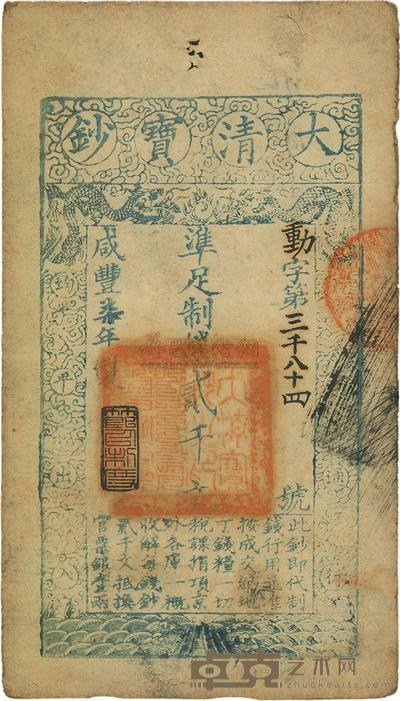 大清寶鈔
動字第三千八十四號
準足制錢貳千文
咸豐柒年製
均平出入
通行
此鈔即代制
錢行用並准
按成交納地
丁錢糧一切
稅課捐項京
外各庫一概
收解每錢鈔
貳千文抵換
官票銀壹兩
卓克艺术网
zhuokearts.com